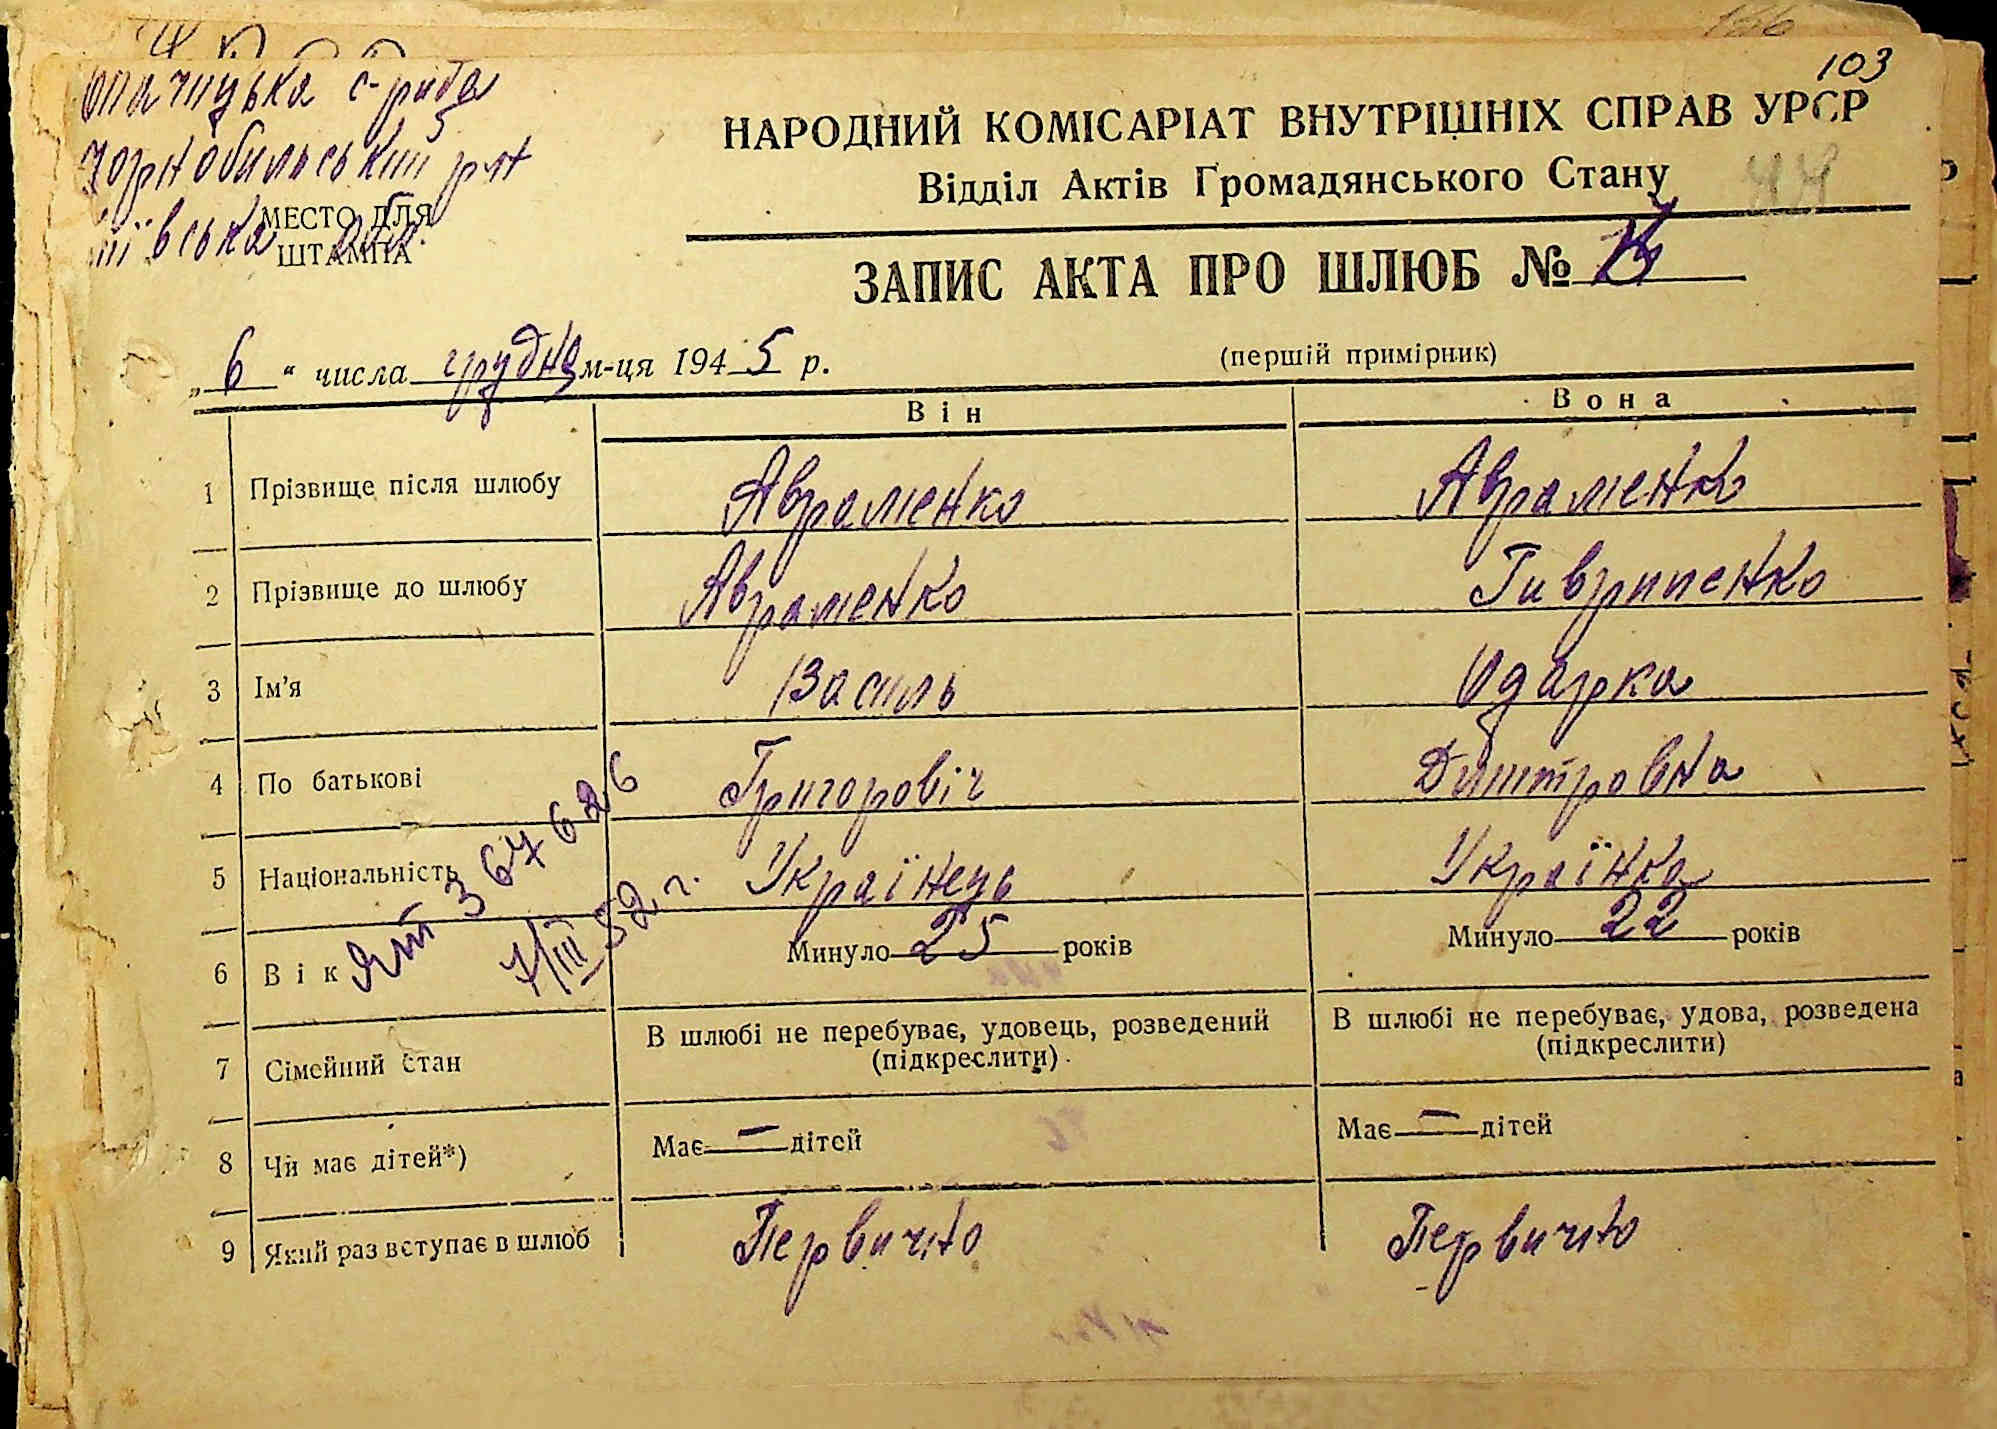 103
Опачицька с-рада
Чорнобильський р-н
Київська обл.
МЕСТО ДЛЯ
ШТАМПА
НАРОДНИЙ КОМІСАРІАТ ВНУТРІШНІХ СПРАВ УРСР
Відділ Актів Громадянського Стану
44
ЗАПИС АКТА ПРО ШЛЮБ №
„ 6 “ числа грудня м-ця 1945 р.
(першій примірник)
Він Вона
1 Прізвище після шлюбу Авраменко Авраменко
2 Прізвище до шлюбу Авраменко Гавриленко
3 Ім'я Василь Одарка
4 По батькові Григоровіч Дмитровна
5 Національність Українець Українка
6 Вік Минуло 25 років Минуло 22 років
3 647626
7/III 52 г.
7 Сімейний стан В шлюбі не перебуває, удовець, розведений (підкреслити) В шлюбі не перебуває, удова, розведена (підкреслити)
8 Чи має дітей*) Має — дітей Має — дітей
9 Який раз вступає в шлюб Первично Первично